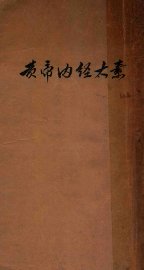 黄帝内经太素